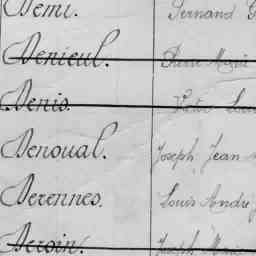 Demi. Fernand G
Denieul. Pierre Marie
Denis. Victor Loui
Denoual. Joseph Jean
Derennes. Louis André J
Deroin. Joseph Marie